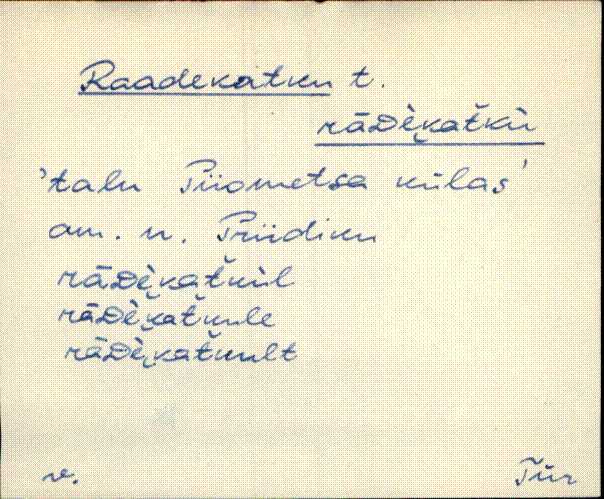 Raadekatku t.
rāDè̮kat̆kù
'talu Piiometsa külas'
am. n. Priidiku
rāDè̮kat̆kùl
rāDè̮kat̆kule
rāDè̮kat̆kult
v. Tür